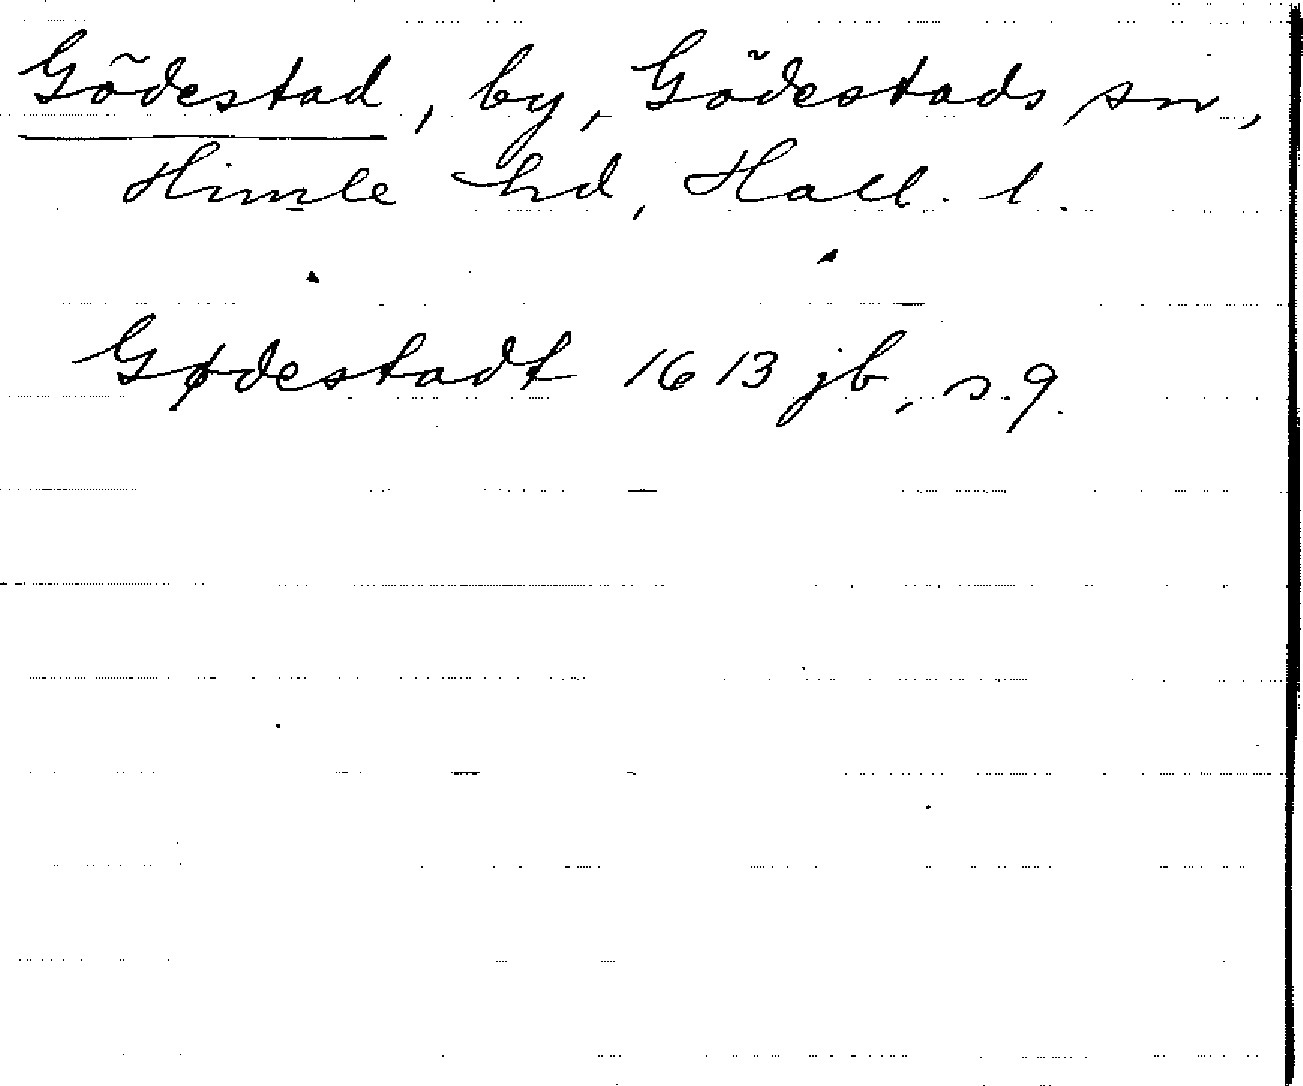 Gödestad, by, Gödestads sn,
Himle hd, Hall. l.
Gødestadt 1613 jb, s. 9.